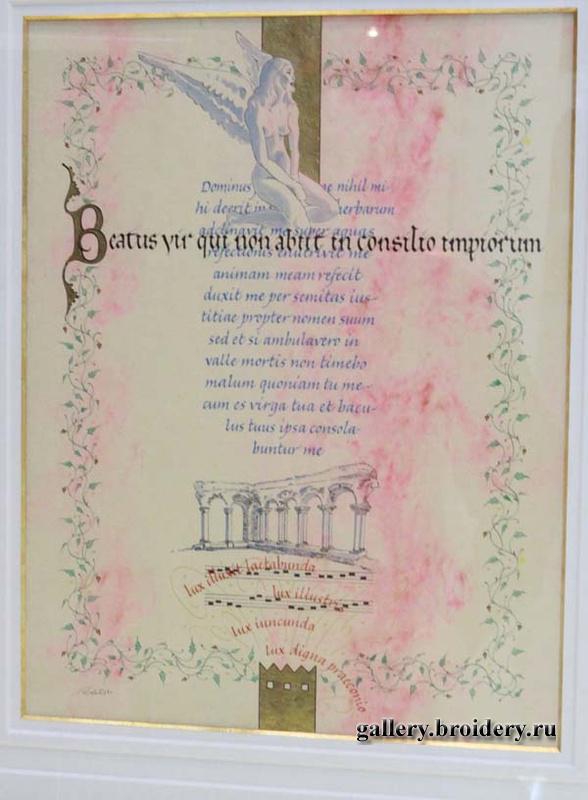 Dominus ne nihil mi-
hi deerit in herbarum
adclinavit me super aquas
Beatus vir qui non abiit in consilio impiorum
refectionis enutrivit me
animam meam refecit
duxit me per semitas ius-
titiae propter nomen suum
sed et si ambulavero in
valle mortis non timebo
malum quoniam tu me-
cum es virga tua et bacu-
lus tuus ipsa consola-
buntur me
lux illuxit laetabunda
lux illustris
lux iucunda
lux digna praeconio
gallery.broidery.ru